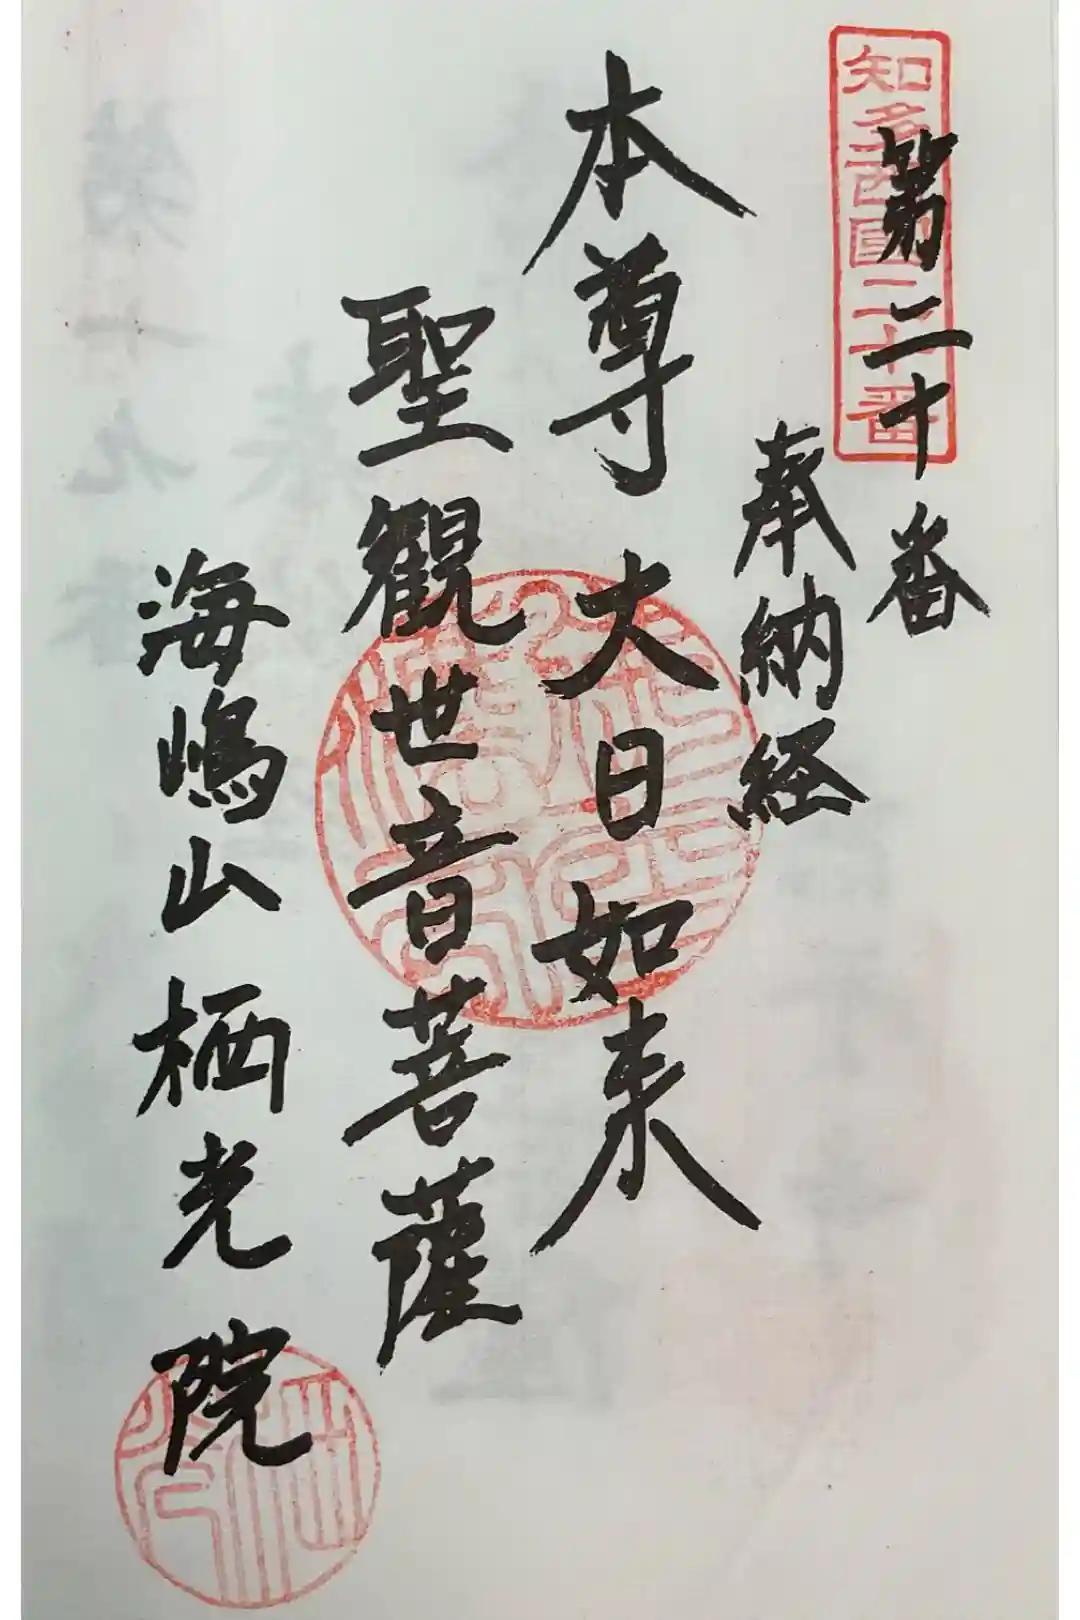 知多西国二十番
第二十番
奉納経
本尊大日如来
聖観世音菩薩
海嶋山栖光院